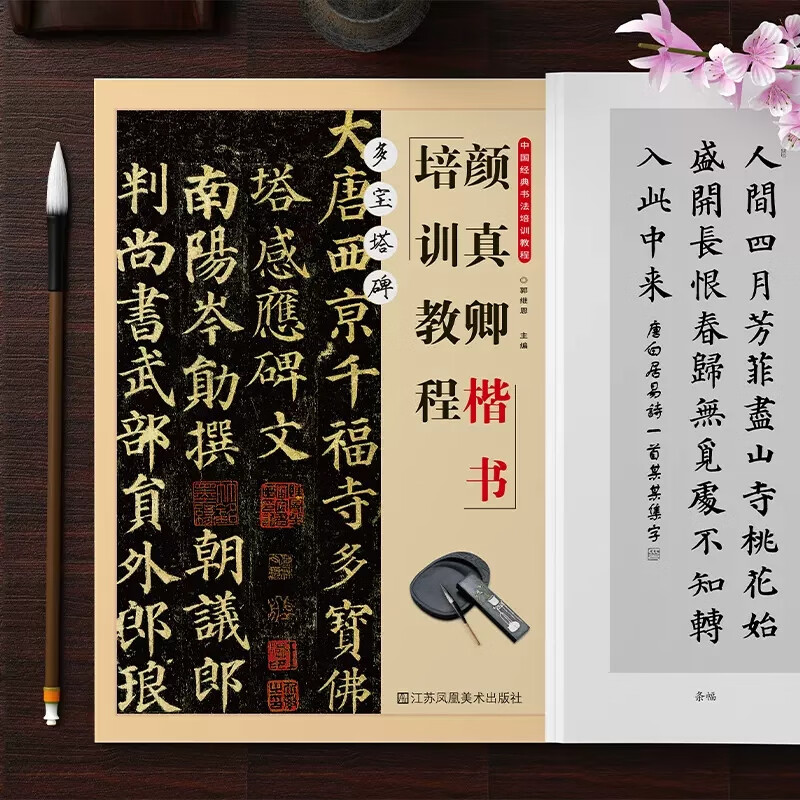 大唐西京千福寺多寶佛
塔感應碑文
南陽岑勛撰 朝議郎
判尚書武部員外郎琅
多宝塔碑
中国经典书法培训教程
郭继恩 主编
颜真卿楷书
培训教程
江苏凤凰美术出版社
人間四月芳菲盡山寺桃花始
盛開長恨春歸無覓處不知轉
入此中来
唐白居易詩一首某某集字
条幅